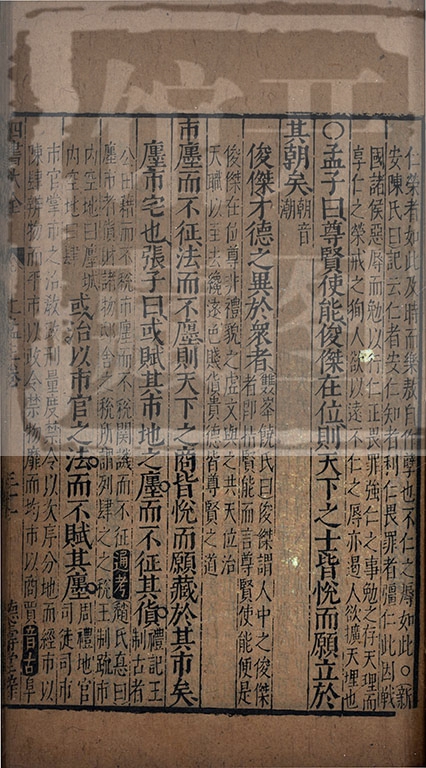 仁榮者如此及時而樂敖自作孽也不仁之辱如此○新
安陳氏曰記云仁者安仁知者利仁畏罪者彊仁此因戰
國諸侯惡辱而勉以行仁正畏罪強仁之事勉之存天理而
享仁之榮戒之狥人欲以遠不仁之辱亦遏人欲擴天理也
○孟子曰尊賢使能俊傑在位則天下之士皆悅而願立於
其朝矣朝音潮
俊傑才德之異於衆者雙峯饒氏曰俊傑謂人中之俊傑
者即指賢能而言尊賢使能便是
俊傑在位尊非禮貌之虛文與之共天位治
天職以至去讒遠色賤貨貴德皆尊賢之道
市廛而不征法而不廛則天下之商皆悅而願藏於其市矣
廛市宅也張子曰或賦其市地之廛而不征其貨禮記王
制古者
公田藉而不稅市廛而不稅關譏而不征通考趙氏悳曰
廛市者貨財諸物邸舍之稅所謂列肆之稅王制疏市
内空地曰廛城
内空地曰肆
或治以市官之法而不賦其廛周禮地官
司徒司市
市官掌市之治教政刑量度禁令以次序分地而經市以
陳肆辨物而平市以政令禁物靡而均市以商賈音古阜
四書大全